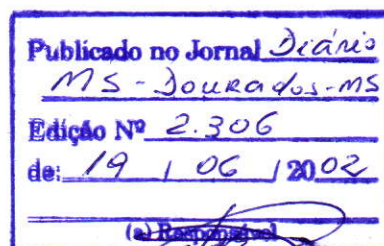 Publicado no Jornal Diário
MS - Dourados-MS
Edição Nº 2.306
de: 19 / 06 / 2002
(a) Responsável